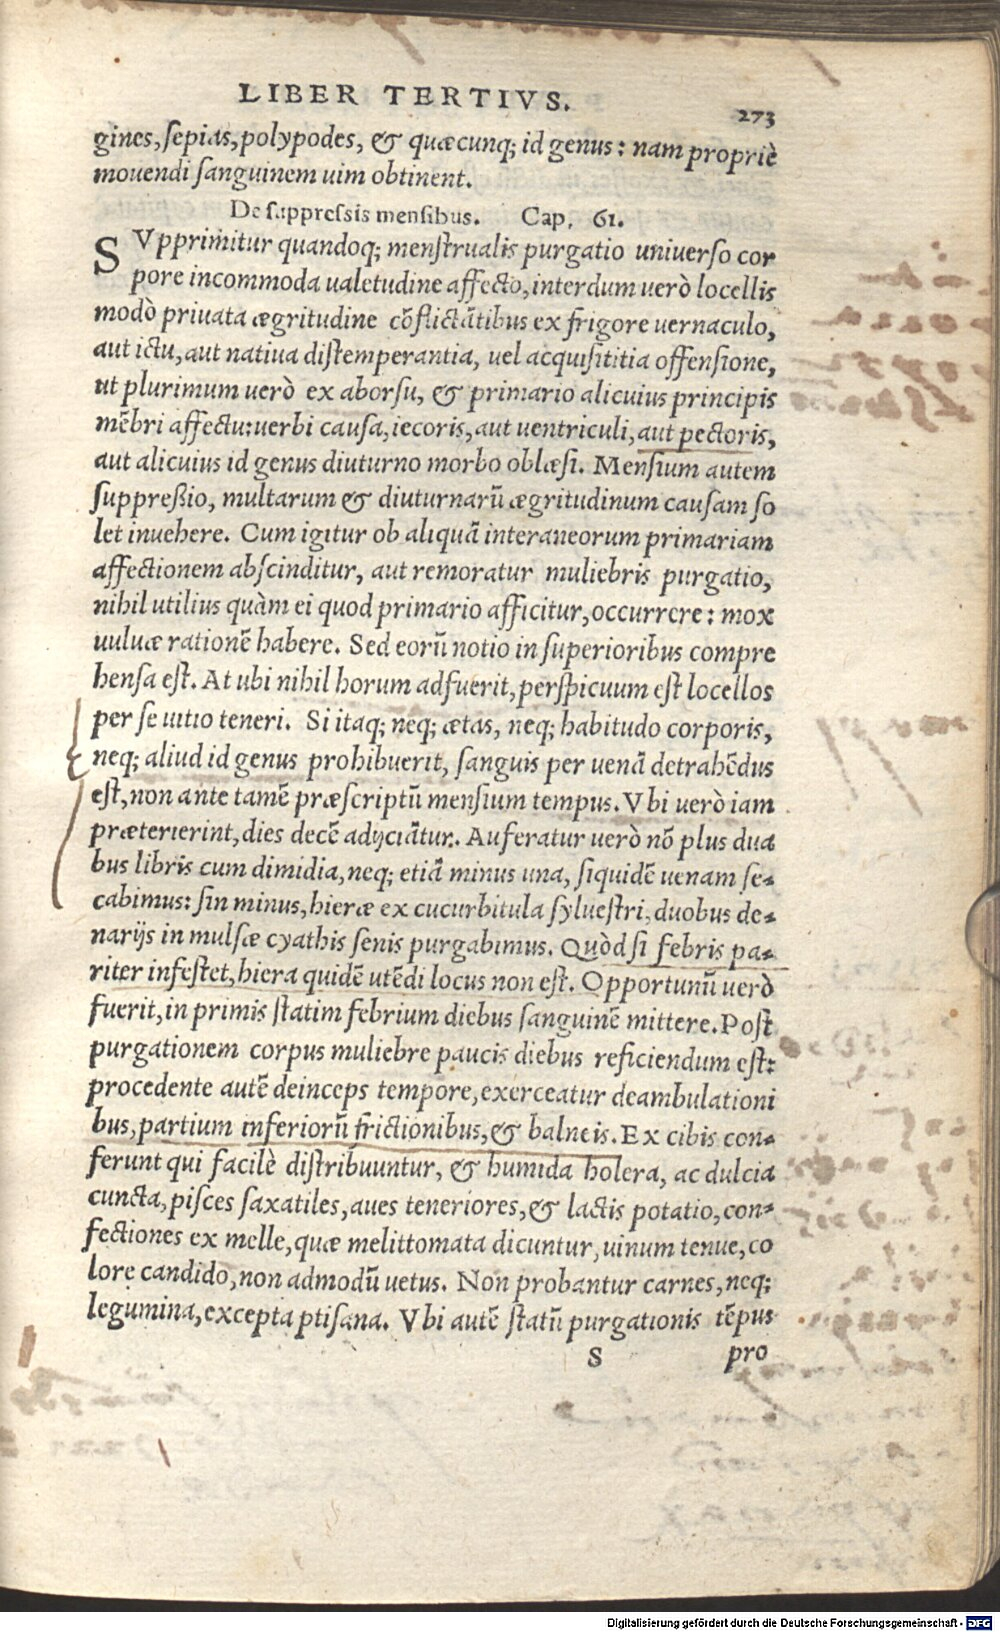 LIBER TERTIVS.
273
gines, sepias, polypodes, & quæcunq; id genus: nam propriè
mouendi sanguinem uim obtinent.
De suppressis mensibus. Cap. 61.
SVpprimitur quandoq; menstrualis purgatio uniuerso cor
pore incommoda ualetudine affecto, interdum uerò locellis
modò priuata ægritudine cōflictātibus ex frigore uernaculo,
aut ictu, aut natiua distemperantia, uel acquisititia offensione,
ut plurimum uerò ex aborsu, & primario alicuius principis
mēbri affectu: uerbi causa, iecoris, aut uentriculi, aut pectoris,
aut alicuius id genus diuturno morbo oblæsi. Mensium autem
suppreßio, multarum & diuturnarū ægritudinum causam so
let inuehere. Cum igitur ob aliquā interaneorum primariam
affectionem abscinditur, aut remoratur muliebris purgatio,
nihil utilius quàm ei quod primario afficitur, occurrere: mox
uuluæ rationē habere. Sed eorū notio in superioribus compre
hensa est. At ubi nihil horum adfuerit, perspicuum est locellos
per se uitio teneri. Si itaq; neq; ætas, neq; habitudo corporis,
neq; aliud id genus prohibuerit, sanguis per uenā detrahēdus
est, non ante tamē præscriptū mensium tempus. Vbi uerò iam
præterierint, dies decē adijciātur. Auferatur uerò nō plus dua
bus libris cum dimidia, neq; etiā minus una, siquidē uenam se-
cabimus: sin minus, hieræ ex cucurbitula syluestri, duobus de-
narijs in mulsæ cyathis senis purgabimus. Quòd si febris pa-
riter infestet, hiera quidē utēdi locus non est. Opportunū uerò
fuerit, in primis statim febrium diebus sanguinē mittere. Post
purgationem corpus muliebre paucis diebus reficiendum est:
procedente autē deinceps tempore, exerceatur deambulationi
bus, partium inferiorū frictionibus, & balneis. Ex cibis con-
ferunt qui facilè distribuuntur, & humida holera, ac dulcia
cuncta, pisces saxatiles, aues teneriores, & lactis potatio, con-
fectiones ex melle, quæ melittomata dicuntur, uinum tenue, co
lore candido, non admodū uetus. Non probantur carnes, neq;
legumina, excepta ptisana. Vbi autē statū purgationis tēpus
S
pro
Digitalisierung gefördert durch die Deutsche Forschungsgemeinschaft - DFG